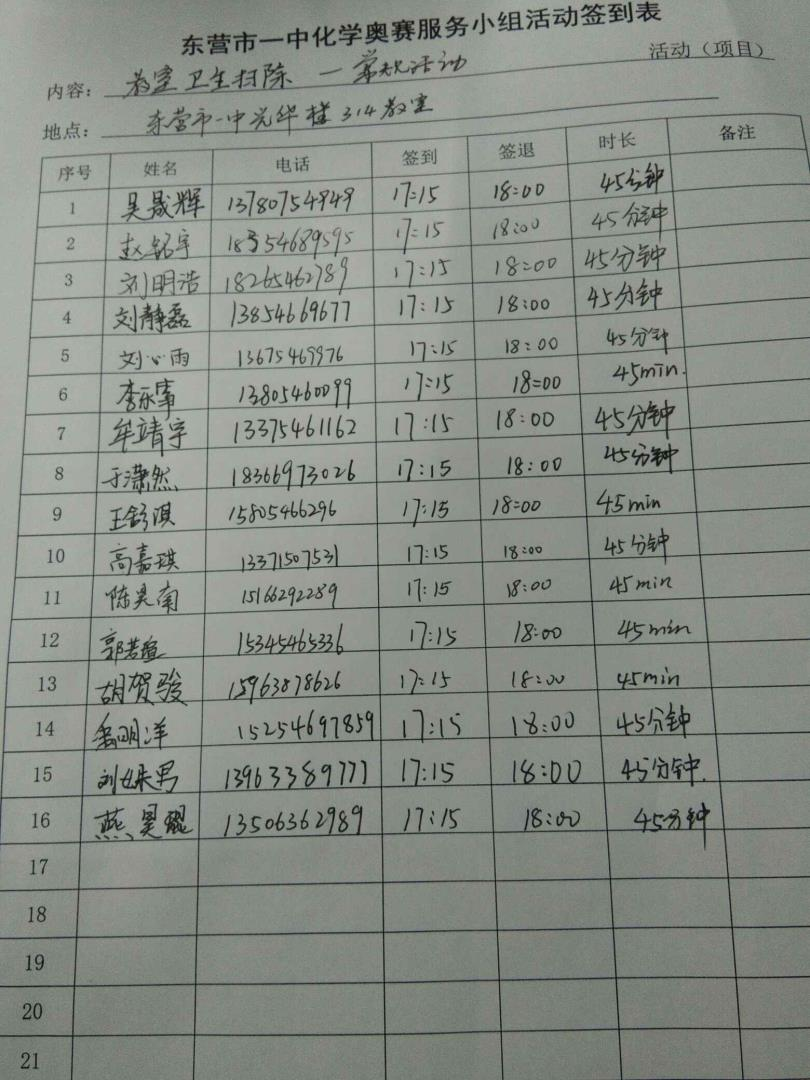 东营市一中化学奥赛服务小组活动签到表
内容: 教室卫生扫除 — 常规活动 活动（项目）
地点: 东营市一中光华楼314教室
序号 姓名 电话 签到 签退 时长 备注
1 吴晟辉 13780754949 17:15 18:00 45分钟
2 赵铭宇 18354689595 17:15 18:00 45分钟
3 刘明浩 18265462789 17:15 18:00 45分钟
4 刘静磊 13854669677 17:15 18:00 45分钟
5 刘心雨 13675469976 17:15 18:00 45分钟
6 13805460099 17:15 18:00 45min.
7 牟靖宇 13375461162 17:15 18:00 45分钟
8 于潇然 18366973026 17:15 18:00 45分钟
9 王舒淇 15805466296 17:15 18:00 45min
10 高嘉琪 13371507531 17:15 18:00 45分钟
11 陈昊南 15166292289 17:15 18:00 45min
12 郭若萱 15345465336 17:15 18:00 45min
13 胡贺骏 15963878626 17:15 18:00 45min
14 15254697859 17:15 18:00 45分钟
15 13963389777 17:15 18:00 45分钟.
16 燕昊琨 13506362989 17:15 18:00 45分钟
17
18
19
20
21